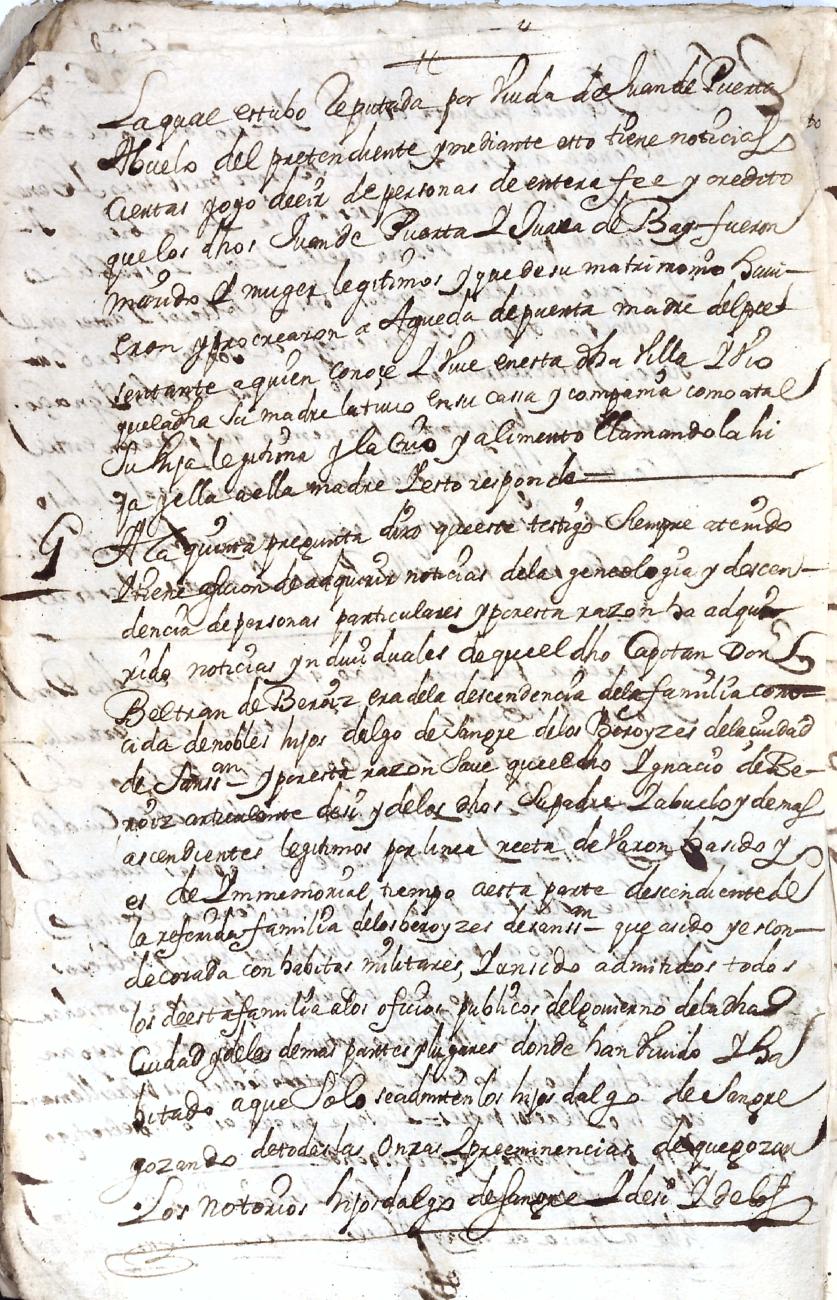 La qual estubo Reputada por Viuda de Juan de Puerta
Abuelo del pretendiente y mediante esto tiene noticias
Ciertas y oyo decir de personas de entera fee y credito
que los dhos Juan de Puerta Y Juana de Bay fueron
marido Y muger legitimos y que de su matrimonio huui
eron y procrearon a Agueda de puerta madre del pre
sentante a quien conoçe Y Viue en esta dha Villa Y Vio
que la dha su madre la tuuo en su cassa y compañia como a tal
Su hija legitima y la Crio y alimento llamandola hi
ja y ella a ella madre Y esto responde
5 A la quinta pregunta dixo que este testigo Siempre a tenido
Y tiene aficion de adquirir noticias de la geneologia y descen
dencia de personas particulares y por esta razon ha adqui
rido noticias yndiuiduales de que el dho Capitan Don
Beltran de Beroiz era de la descendencia de la familia cono
cida de nobles hijos dalgo de sangre de los Beroyzes de la ciudad
de Sanss.an y por esta razon Saue que el dho Ygnacio de Be
roiz articulante de si y de los dhos Su padre Y abuelo y demas
ascendientes legitimos por linea recta de Varon ha sido y
es de Ymmemorial tiempo a esta parte descendiente de
la referida familia de los beroyzes de sanss.an que a sido y es con
decorada con habitos militares, Y an sido admitidos todos
los de esta familia a los oficios publicos del gouierno de la dha
Ciudad y de las demas partes y lugares donde han Viuido Y ha
bitado a que Solo se admiten los hijos dalgo de Sangre
gozando de todas las Onrras Y preeminencias de que gozan
Los notorios hijos dalgo de sangre Y de si Y de los